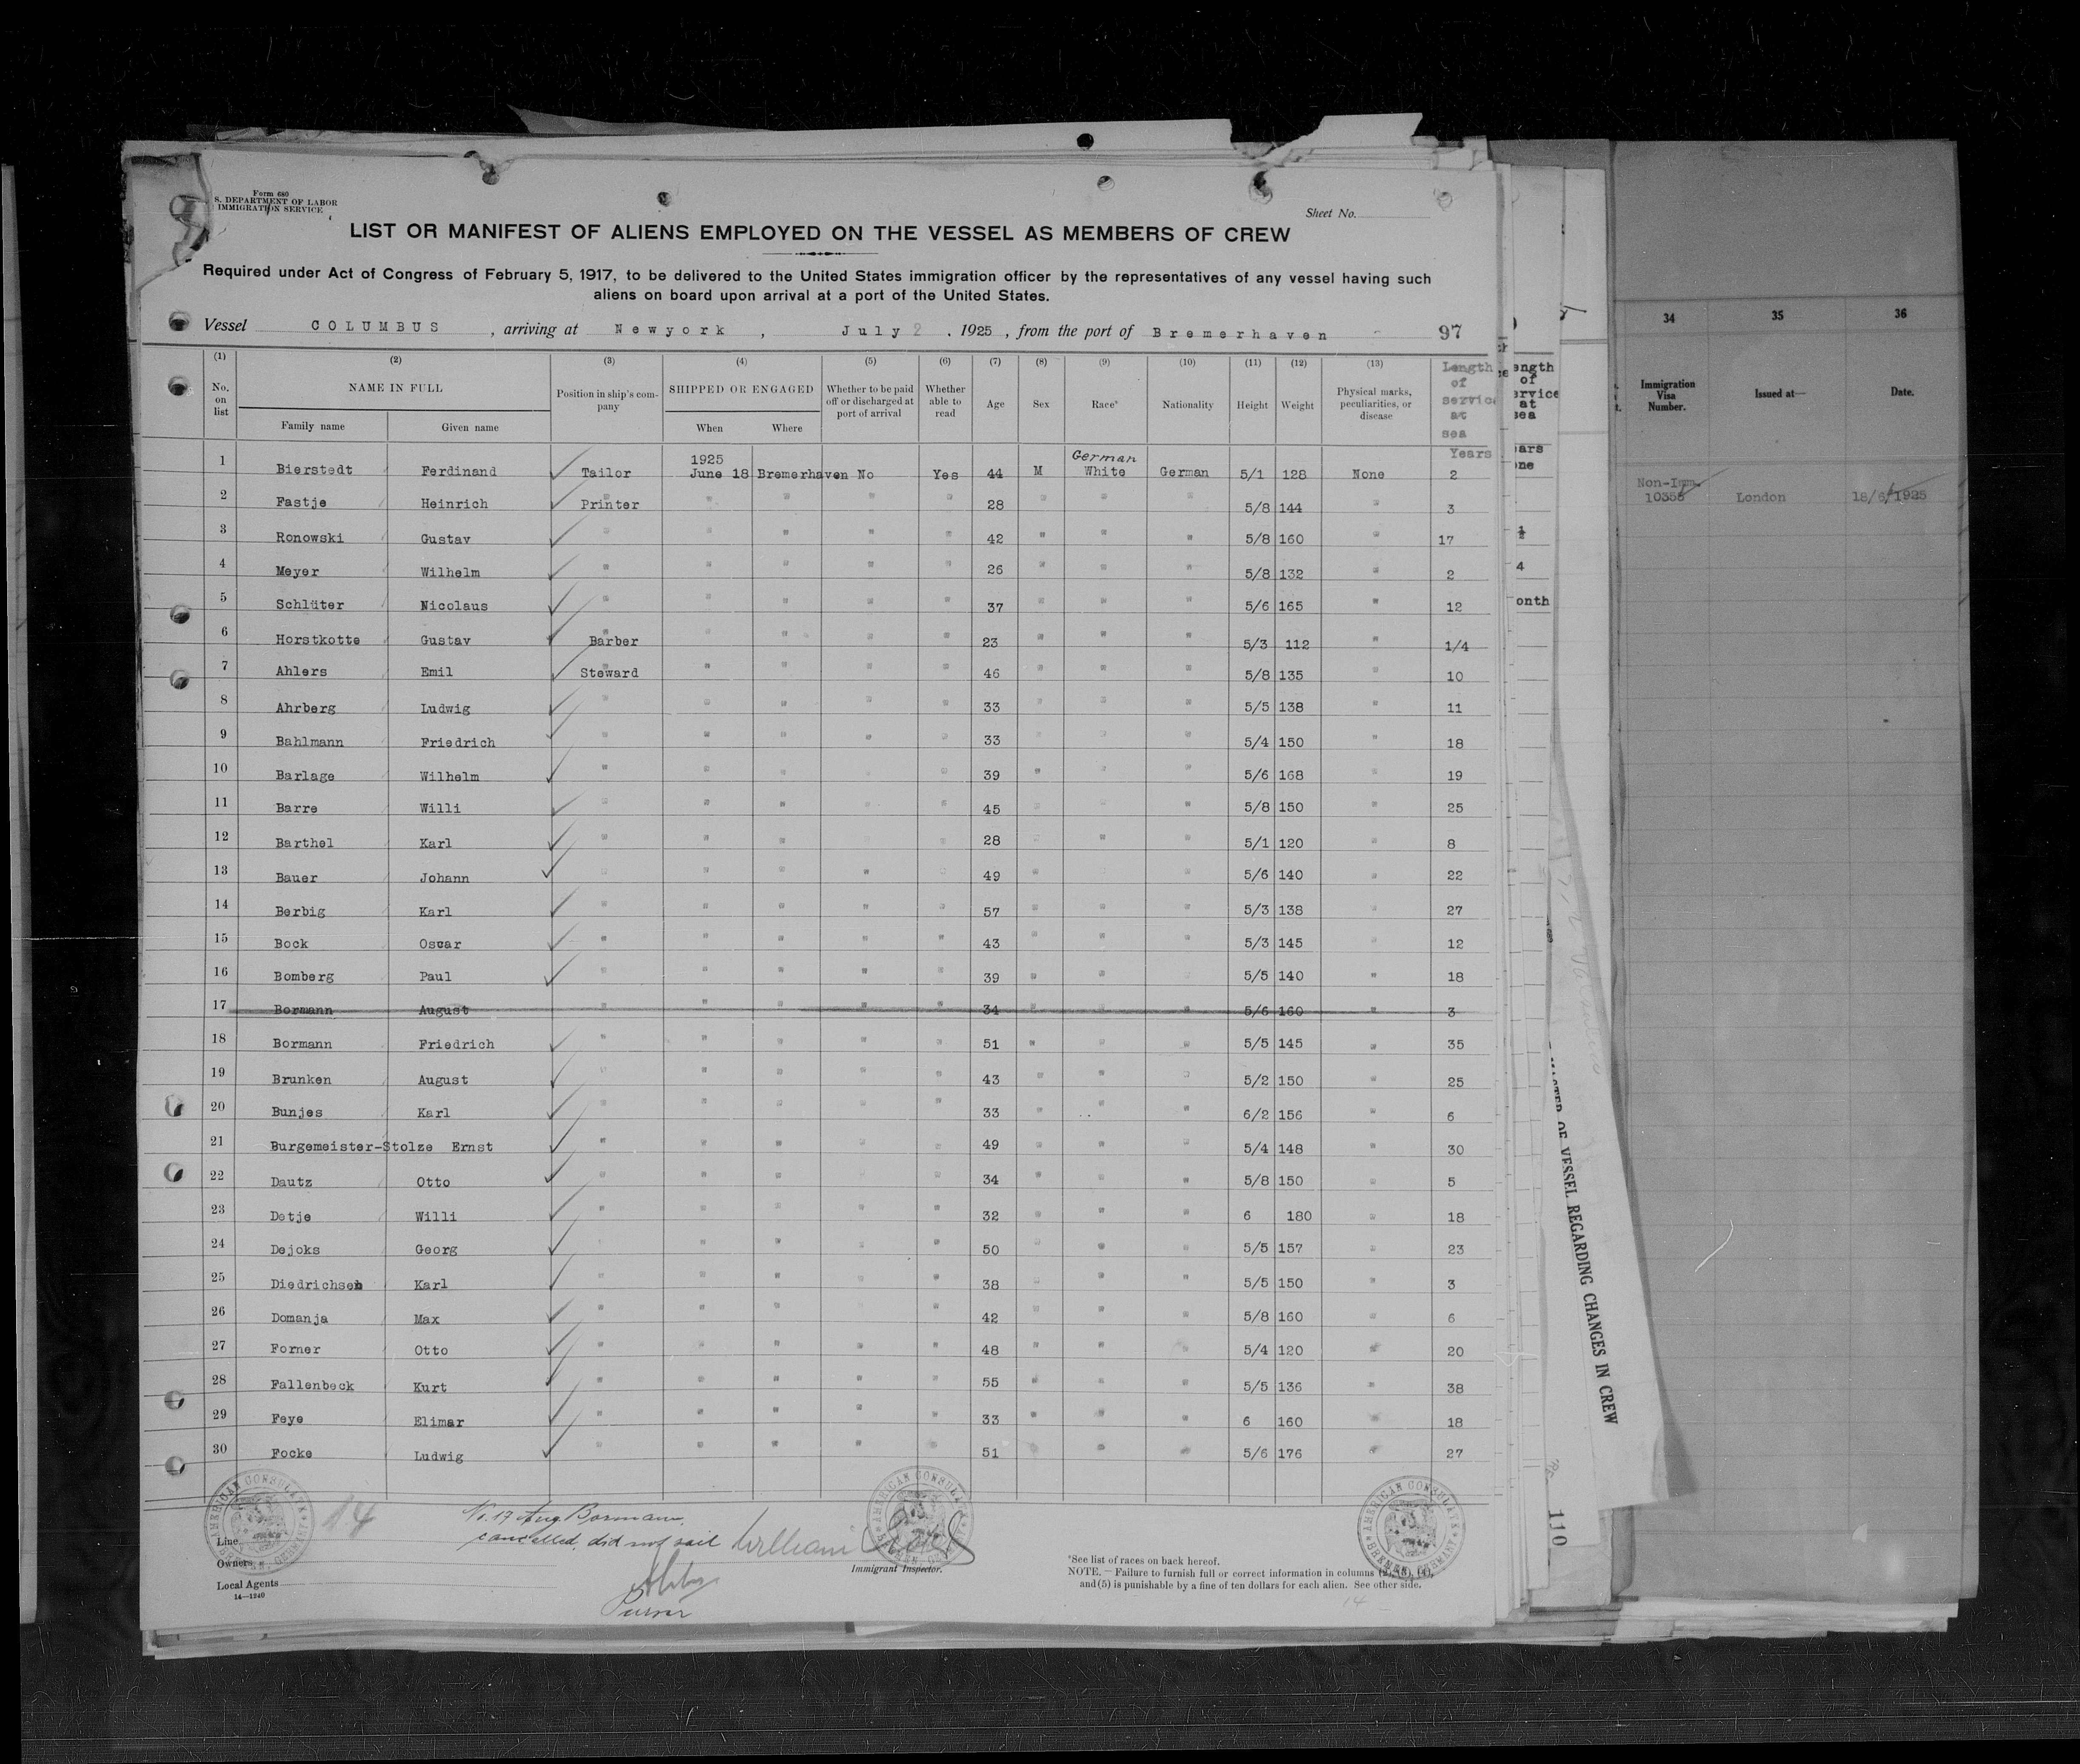 Form 680
S. DEPARTMENT OF LABOR
IMMIGRATION SERVICE
Sheet No.
LIST OR MANIFEST OF ALIENS EMPLOYED ON THE VESSEL AS MEMBERS OF CREW
Required under Act of Congress of February 5, 1917, to be delivered to the United States immigration officer by the representatives of any vessel having such
aliens on board upon arrival at a port of the United States.
Vessel COLUMBUS , arriving at Newyork , July 2 , 1925 , from the port of Bremerhaven 97
(1) (2) (3) (4) (5) (6) (7) (8) (9) (10) (11) (12) (13)
No. on list NAME IN FULL Family name Given name Position in ship's company SHIPPED OR ENGAGED When Where Whether to be paid off or discharged at port of arrival Whether able to read Age Sex Race* Nationality Height Weight Physical marks, peculiarities, or disease Length of service at sea
1 Bierstedt Ferdinand Tailor 1925 June 18 Bremerhaven No Yes 44 M German White German 5/1 128 None Years 2
2 Fastje Heinrich Printer " " " " 28 " " " 5/8 144 " 3
3 Ronowski Gustav " " " " " 42 " " " 5/8 160 " 17
4 Meyer Wilhelm " " " " " 26 " " " 5/8 132 " 2
5 Schlüter Nicolaus " " " " " 37 " " " 5/6 165 " 12
6 Horstkotte Gustav Barber " " " " 23 " " " 5/3 112 " 1/4
7 Ahlers Emil Steward " " " " 46 " " " 5/8 135 " 10
8 Ahrberg Ludwig " " " " " 33 " " " 5/5 138 " 11
9 Bahlmann Friedrich " " " " " 33 " " " 5/4 150 " 18
10 Barlage Wilhelm " " " " " 39 " " " 5/6 168 " 19
11 Barre Willi " " " " " 45 " " " 5/8 150 " 25
12 Barthel Karl " " " " " 28 " " " 5/1 120 " 8
13 Bauer Johann " " " " " 49 " " " 5/6 140 " 22
14 Berbig Karl " " " " " 57 " " " 5/3 138 " 27
15 Bock Oscar " " " " " 43 " " " 5/3 145 " 12
16 Bomberg Paul " " " " " 39 " " " 5/5 140 " 18
17 Bormann August " " " " " 34 " " " 5/6 160 " 3
18 Bormann Friedrich " " " " " 51 " " " 5/5 145 " 35
19 Brunken August " " " " " 43 " " " 5/2 150 " 25
20 Bunjes Karl " " " " " 33 " " " 6/2 156 " 6
21 Burgemeister-Stolze Ernst " " " " " 49 " " " 5/4 148 " 30
22 Dautz Otto " " " " " 34 " " " 5/8 150 " 5
23 Detje Willi " " " " " 32 " " " 6 180 " 18
24 Dejoks Georg " " " " " 50 " " " 5/5 157 " 23
25 Diedrichsen Karl " " " " " 38 " " " 5/5 150 " 3
26 Domanja Max " " " " " 42 " " " 5/8 160 " 6
27 Forner Otto " " " " " 48 " " " 5/4 120 " 20
28 Fallenbeck Kurt " " " " " 55 " " " 5/5 136 " 38
29 Feye Elimar " " " " " 33 " " " 6 160 " 18
30 Focke Ludwig " " " " " 51 " " " 5/6 176 " 27
14
No. 17 Aug. Bormann,
cancelled, did not sail
William
Purser
AMERICAN CONSULATE
BREMEN, GERMANY
Line
Owners
Local Agents
14—1240
Immigrant Inspector.
*See list of races on back hereof.
NOTE.—Failure to furnish full or correct information in columns (2), (3), (4),
and (5) is punishable by a fine of ten dollars for each alien. See other side.
14
ength
of
ervice
at
sea
ears
one
4
onth
MASTER OF VESSEL REGARDING CHANGES IN CREW
110
34 35 36
Immigration Visa Number. Issued at— Date.
Non-Imm.
10358 London 18/6/1925